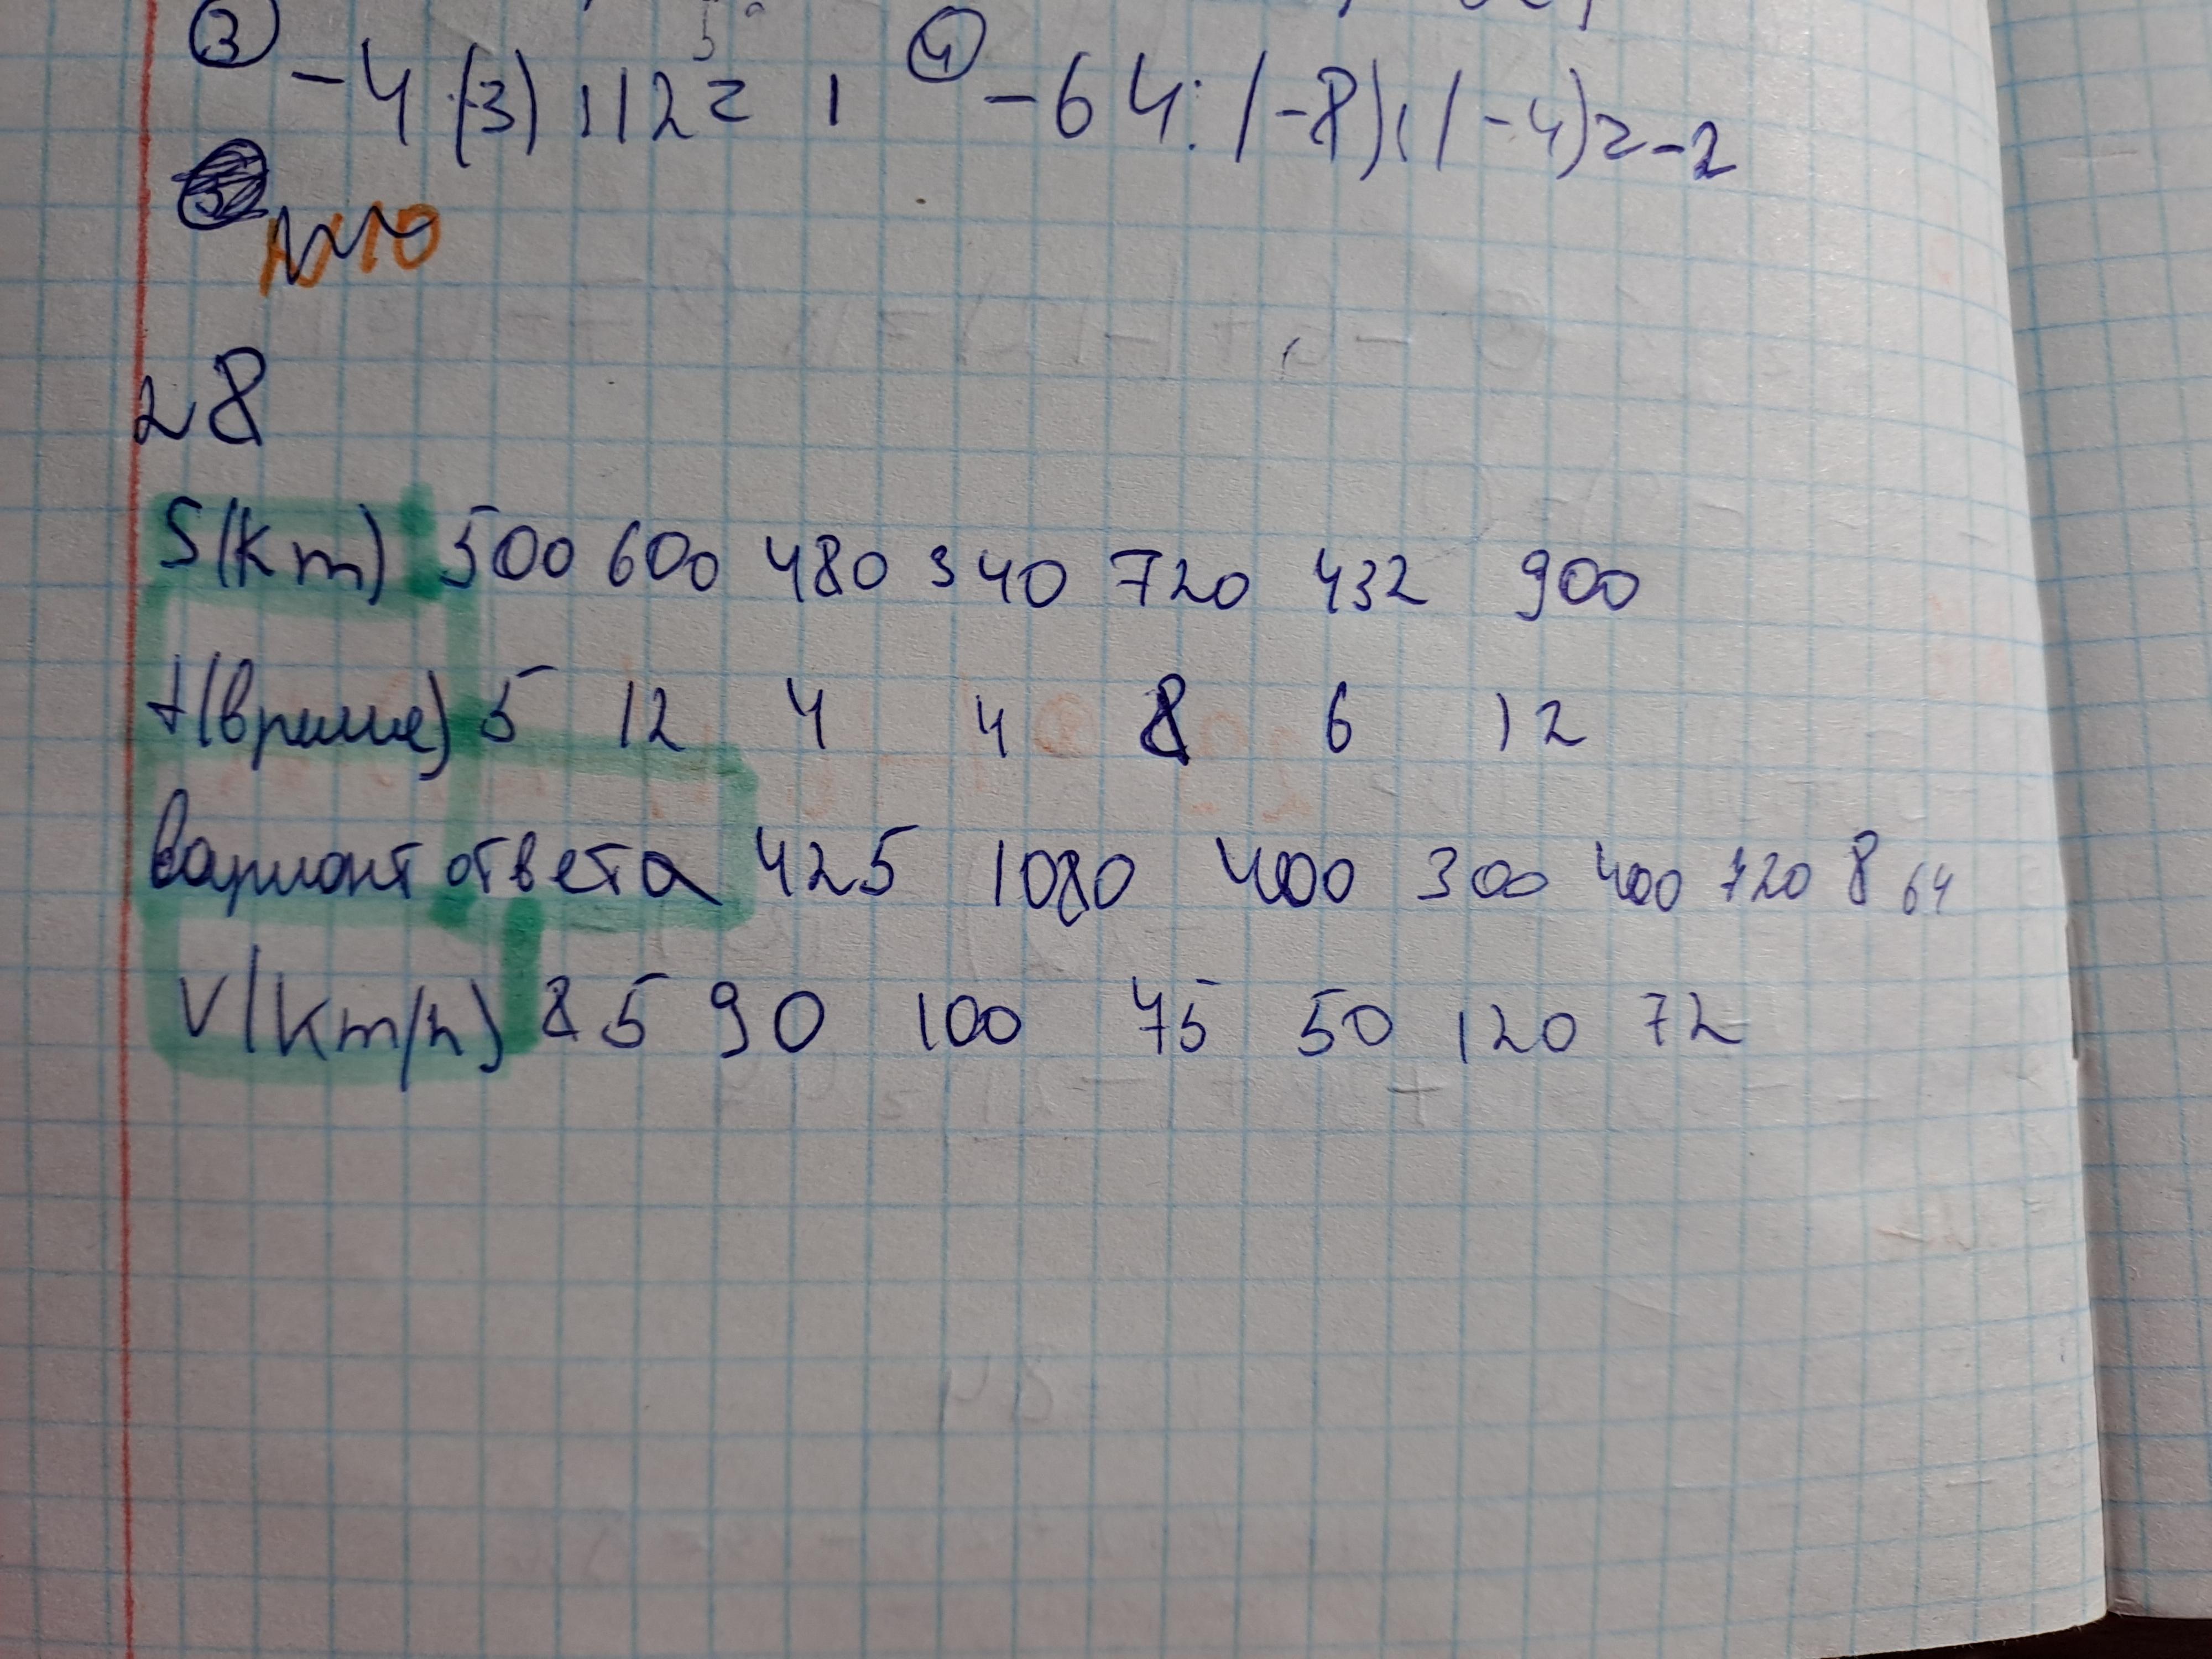 ③ -4·(-3):12=1 ④ -64:(-8):(-4)=-2
№10
28
S(km) 500 600 480 340 720 432 900
t(время) 5 12 4 4 8 6 12
Вариант ответа 425 1080 400 300 400 720 8 64
V(km/h) 85 90 100 75 50 120 72